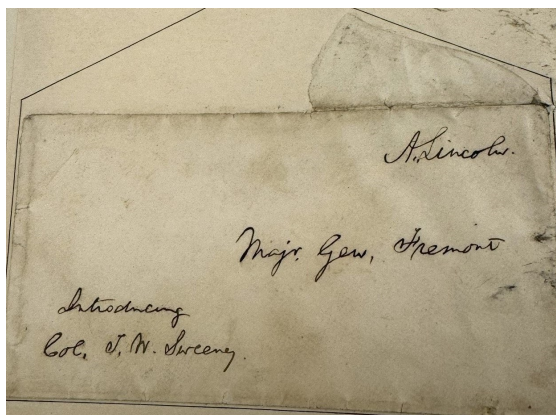 A. Lincoln.
Majr. Gen, Fremont
Introducing
Col. T. W. Sweeney.